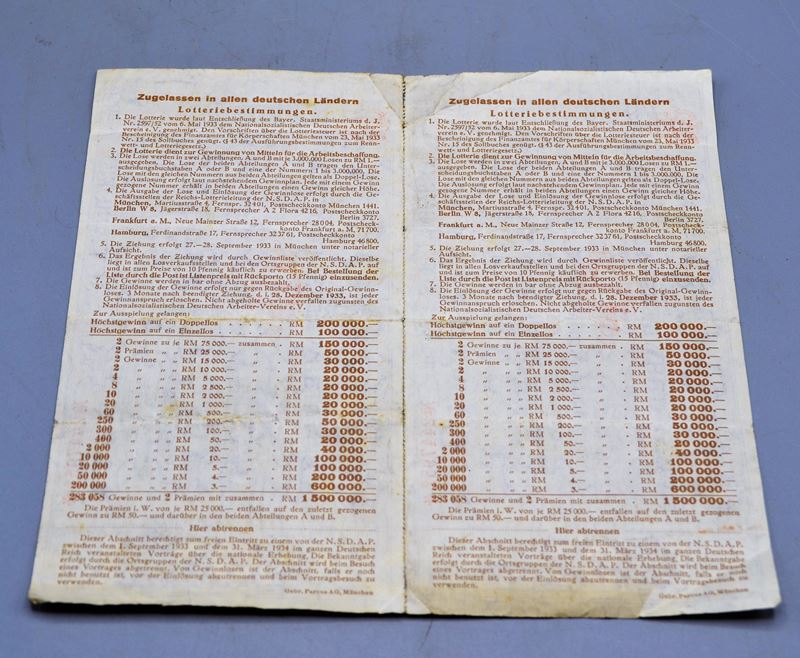 Zugelassen in allen deutschen Ländern
Lotteriebestimmungen.
1. Die Lotterie wurde laut Entschließung des Bayer. Staatsministeriums d. J.
Nr. 2597/52 vom 6. Mai 1933 dem Nationalsozialistischen Deutschen Arbeiter-
verein e. V. genehmigt. Den Vorschriften über die Lotteriesteuer ist nach der
Bescheinigung des Finanzamtes für Körperschaften München vom 23. Mai 1933
Nr. 15 des Sollbuches genügt. (§ 43 der Ausführungsbestimmungen zum Renn-
wett- und Lotteriegesetz.)
2. Die Lotterie dient zur Gewinnung von Mitteln für die Arbeitsbeschaffung.
3. Die Lose werden in zwei Abteilungen, A und B mit je 3.000.000 Losen zu RM 1.—
ausgegeben. Die Lose der beiden Abteilungen A und B tragen den Unter-
scheidungsbuchstaben A oder B und eine der Nummern 1 bis 3.000.000. Die
Lose mit den gleichen Nummern aus beiden Abteilungen gelten als Doppel-Lose.
Die Auslosung erfolgt laut nachstehendem Gewinnplan. Jede mit einem Gewinn
gezogene Nummer erhält in beiden Abteilungen einen Gewinn gleicher Höhe.
4. Die Ausgabe der Lose und Einlösung der Gewinnlose erfolgt durch die Ge-
schäftsstellen der Reichs-Lotterieleitung der N. S. D. A. P. in
München, Mariusstraße 4, Fernspr. 32401, Postscheckkonto München 1441.
Berlin W 8, Jägerstraße 18, Fernsprecher A 2 Flora 4216, Postscheckkonto
Berlin 3727.
Frankfurt a. M., Neue Mainzer Straße 12, Fernsprecher 28004, Postscheck-
konto Frankfurt a. M. 71700.
Hamburg, Ferdinandstraße 17, Fernsprecher 32 37 61, Postscheckkonto
Hamburg 46800.
5. Die Ziehung erfolgt 27.—28. September 1933 in München unter notarieller
Aufsicht.
6. Das Ergebnis der Ziehung wird durch Gewinnliste veröffentlicht. Dieselbe
liegt in allen Losverkaufsstellen und bei den Ortsgruppen der N. S. D. A. P. auf
und ist zum Preise von 10 Pfennig käuflich zu erwerben. Bei Bestellung der
Liste durch die Post ist Listenpreis mit Rückporto (15 Pfennig) einzusenden.
7. Die Gewinne werden in bar ohne Abzug ausbezahlt.
8. Die Einlösung der Gewinne erfolgt nur gegen Rückgabe des Original-Gewinn-
loses. 3 Monate nach beendigter Ziehung, d. i. 28. Dezember 1933, ist jeder
Gewinanspruch erloschen. Nicht abgeholte Gewinne verfallen zugunsten des
Nationalsozialistischen Deutschen Arbeiter-Vereins e. V.
Zur Ausspielung gelangen:
Höchstgewinn auf ein Doppellos . . . . . RM 200 000.—
Höchstgewinn auf ein Einzellos . . . . . RM 100 000.—
2 Gewinne zu je RM 75 000.— zusammen . RM 150 000.—
2 Prämien " " RM 25 000.— " . RM 50 000.—
2 Gewinne " " RM 15 000.— " . RM 30 000.—
2 " " " RM 10 000.— " . RM 20 000.—
4 " " " RM 5 000.— " . RM 20 000.—
8 " " " RM 2 500.— " . RM 20 000.—
10 " " " RM 2 000.— " . RM 20 000.—
20 " " " RM 1 000.— " . RM 20 000.—
60 " " " RM 500.— " . RM 30 000.—
250 " " " RM 200.— " . RM 50 000.—
300 " " " RM 100.— " . RM 30 000.—
400 " " " RM 50.— " . RM 20 000.—
2 000 " " " RM 20.— " . RM 40 000.—
10 000 " " " RM 10.— " . RM 100 000.—
20 000 " " " RM 5.— " . RM 100 000.—
50 000 " " " RM 4.— " . RM 200 000.—
200 000 " " " RM 3.— " . RM 600 000.—
283 058 Gewinne und 2 Prämien mit zusammen . RM 1 500 000.—
Die Prämien i. W. von je RM 25 000.— entfallen auf den zuletzt gezogenen
Gewinn zu RM 50.— und darüber in den beiden Abteilungen A und B.
Hier abtrennen
Dieser Abschnitt berechtigt zum freien Eintritt zu einem von der N. S. D. A. P.
zwischen dem 1. September 1933 und dem 31. März 1934 im ganzen Deutschen
Reich veranstalteten Vorträge über die nationale Erhebung. Die Bekanntgabe
erfolgt durch die Ortsgruppen der N. S. D. A. P. Der Abschnitt wird beim Besuch
eines Vortrages abgetrennt. Von Gewinnlosen ist der Abschnitt, falls er noch
nicht benutzt ist, vor der Einlösung abzutrennen und beim Vortragsbesuch zu
verwenden.
Gebr. Parcus AG, München
Zugelassen in allen deutschen Ländern
Lotteriebestimmungen.
1. Die Lotterie wurde laut Entschließung des Bayer. Staatsministeriums d. J.
Nr. 2597/52 vom 6. Mai 1933 dem Nationalsozialistischen Deutschen Arbeiter-
verein e. V. genehmigt. Den Vorschriften über die Lotteriesteuer ist nach der
Bescheinigung des Finanzamtes für Körperschaften München vom 23. Mai 1933
Nr. 15 des Sollbuches genügt. (§ 43 der Ausführungsbestimmungen zum Renn-
wett- und Lotteriegesetz.)
2. Die Lotterie dient zur Gewinnung von Mitteln für die Arbeitsbeschaffung.
3. Die Lose werden in zwei Abteilungen, A und B mit je 3.000.000 Losen zu RM 1.—
ausgegeben. Die Lose der beiden Abteilungen A und B tragen den Unter-
scheidungsbuchstaben A oder B und eine der Nummern 1 bis 3.000.000. Die
Lose mit den gleichen Nummern aus beiden Abteilungen gelten als Doppel-Lose.
Die Auslosung erfolgt laut nachstehendem Gewinnplan. Jede mit einem Gewinn
gezogene Nummer erhält in beiden Abteilungen einen Gewinn gleicher Höhe.
4. Die Ausgabe der Lose und Einlösung der Gewinnlose erfolgt durch die Ge-
schäftsstellen der Reichs-Lotterieleitung der N. S. D. A. P. in
München, Mariusstraße 4, Fernspr. 32401, Postscheckkonto München 1441.
Berlin W 8, Jägerstraße 18, Fernsprecher A 2 Flora 4216, Postscheckkonto
Berlin 3727.
Frankfurt a. M., Neue Mainzer Straße 12, Fernsprecher 28004, Postscheck-
konto Frankfurt a. M. 71700.
Hamburg, Ferdinandstraße 17, Fernsprecher 32 37 61, Postscheckkonto
Hamburg 46800.
5. Die Ziehung erfolgt 27.—28. September 1933 in München unter notarieller
Aufsicht.
6. Das Ergebnis der Ziehung wird durch Gewinnliste veröffentlicht. Dieselbe
liegt in allen Losverkaufsstellen und bei den Ortsgruppen der N. S. D. A. P. auf
und ist zum Preise von 10 Pfennig käuflich zu erwerben. Bei Bestellung der
Liste durch die Post ist Listenpreis mit Rückporto (15 Pfennig) einzusenden.
7. Die Gewinne werden in bar ohne Abzug ausbezahlt.
8. Die Einlösung der Gewinne erfolgt nur gegen Rückgabe des Original-Gewinn-
loses. 3 Monate nach beendigter Ziehung, d. i. 28. Dezember 1933, ist jeder
Gewinanspruch erloschen. Nicht abgeholte Gewinne verfallen zugunsten des
Nationalsozialistischen Deutschen Arbeiter-Vereins e. V.
Zur Ausspielung gelangen:
Höchstgewinn auf ein Doppellos . . . . . RM 200 000.—
Höchstgewinn auf ein Einzellos . . . . . RM 100 000.—
2 Gewinne zu je RM 75 000.— zusammen . RM 150 000.—
2 Prämien " " RM 25 000.— " . RM 50 000.—
2 Gewinne " " RM 15 000.— " . RM 30 000.—
2 " " " RM 10 000.— " . RM 20 000.—
4 " " " RM 5 000.— " . RM 20 000.—
8 " " " RM 2 500.— " . RM 20 000.—
10 " " " RM 2 000.— " . RM 20 000.—
20 " " " RM 1 000.— " . RM 20 000.—
60 " " " RM 500.— " . RM 30 000.—
250 " " " RM 200.— " . RM 50 000.—
300 " " " RM 100.— " . RM 30 000.—
400 " " " RM 50.— " . RM 20 000.—
2 000 " " " RM 20.— " . RM 40 000.—
10 000 " " " RM 10.— " . RM 100 000.—
20 000 " " " RM 5.— " . RM 100 000.—
50 000 " " " RM 4.— " . RM 200 000.—
200 000 " " " RM 3.— " . RM 600 000.—
283 058 Gewinne und 2 Prämien mit zusammen . RM 1 500 000.—
Die Prämien i. W. von je RM 25 000.— entfallen auf den zuletzt gezogenen
Gewinn zu RM 50.— und darüber in den beiden Abteilungen A und B.
Hier abtrennen
Dieser Abschnitt berechtigt zum freien Eintritt zu einem von der N. S. D. A. P.
zwischen dem 1. September 1933 und dem 31. März 1934 im ganzen Deutschen
Reich veranstalteten Vorträge über die nationale Erhebung. Die Bekanntgabe
erfolgt durch die Ortsgruppen der N. S. D. A. P. Der Abschnitt wird beim Besuch
eines Vortrages abgetrennt. Von Gewinnlosen ist der Abschnitt, falls er noch
nicht benutzt ist, vor der Einlösung abzutrennen und beim Vortragsbesuch zu
verwenden.
Gebr. Parcus AG, München